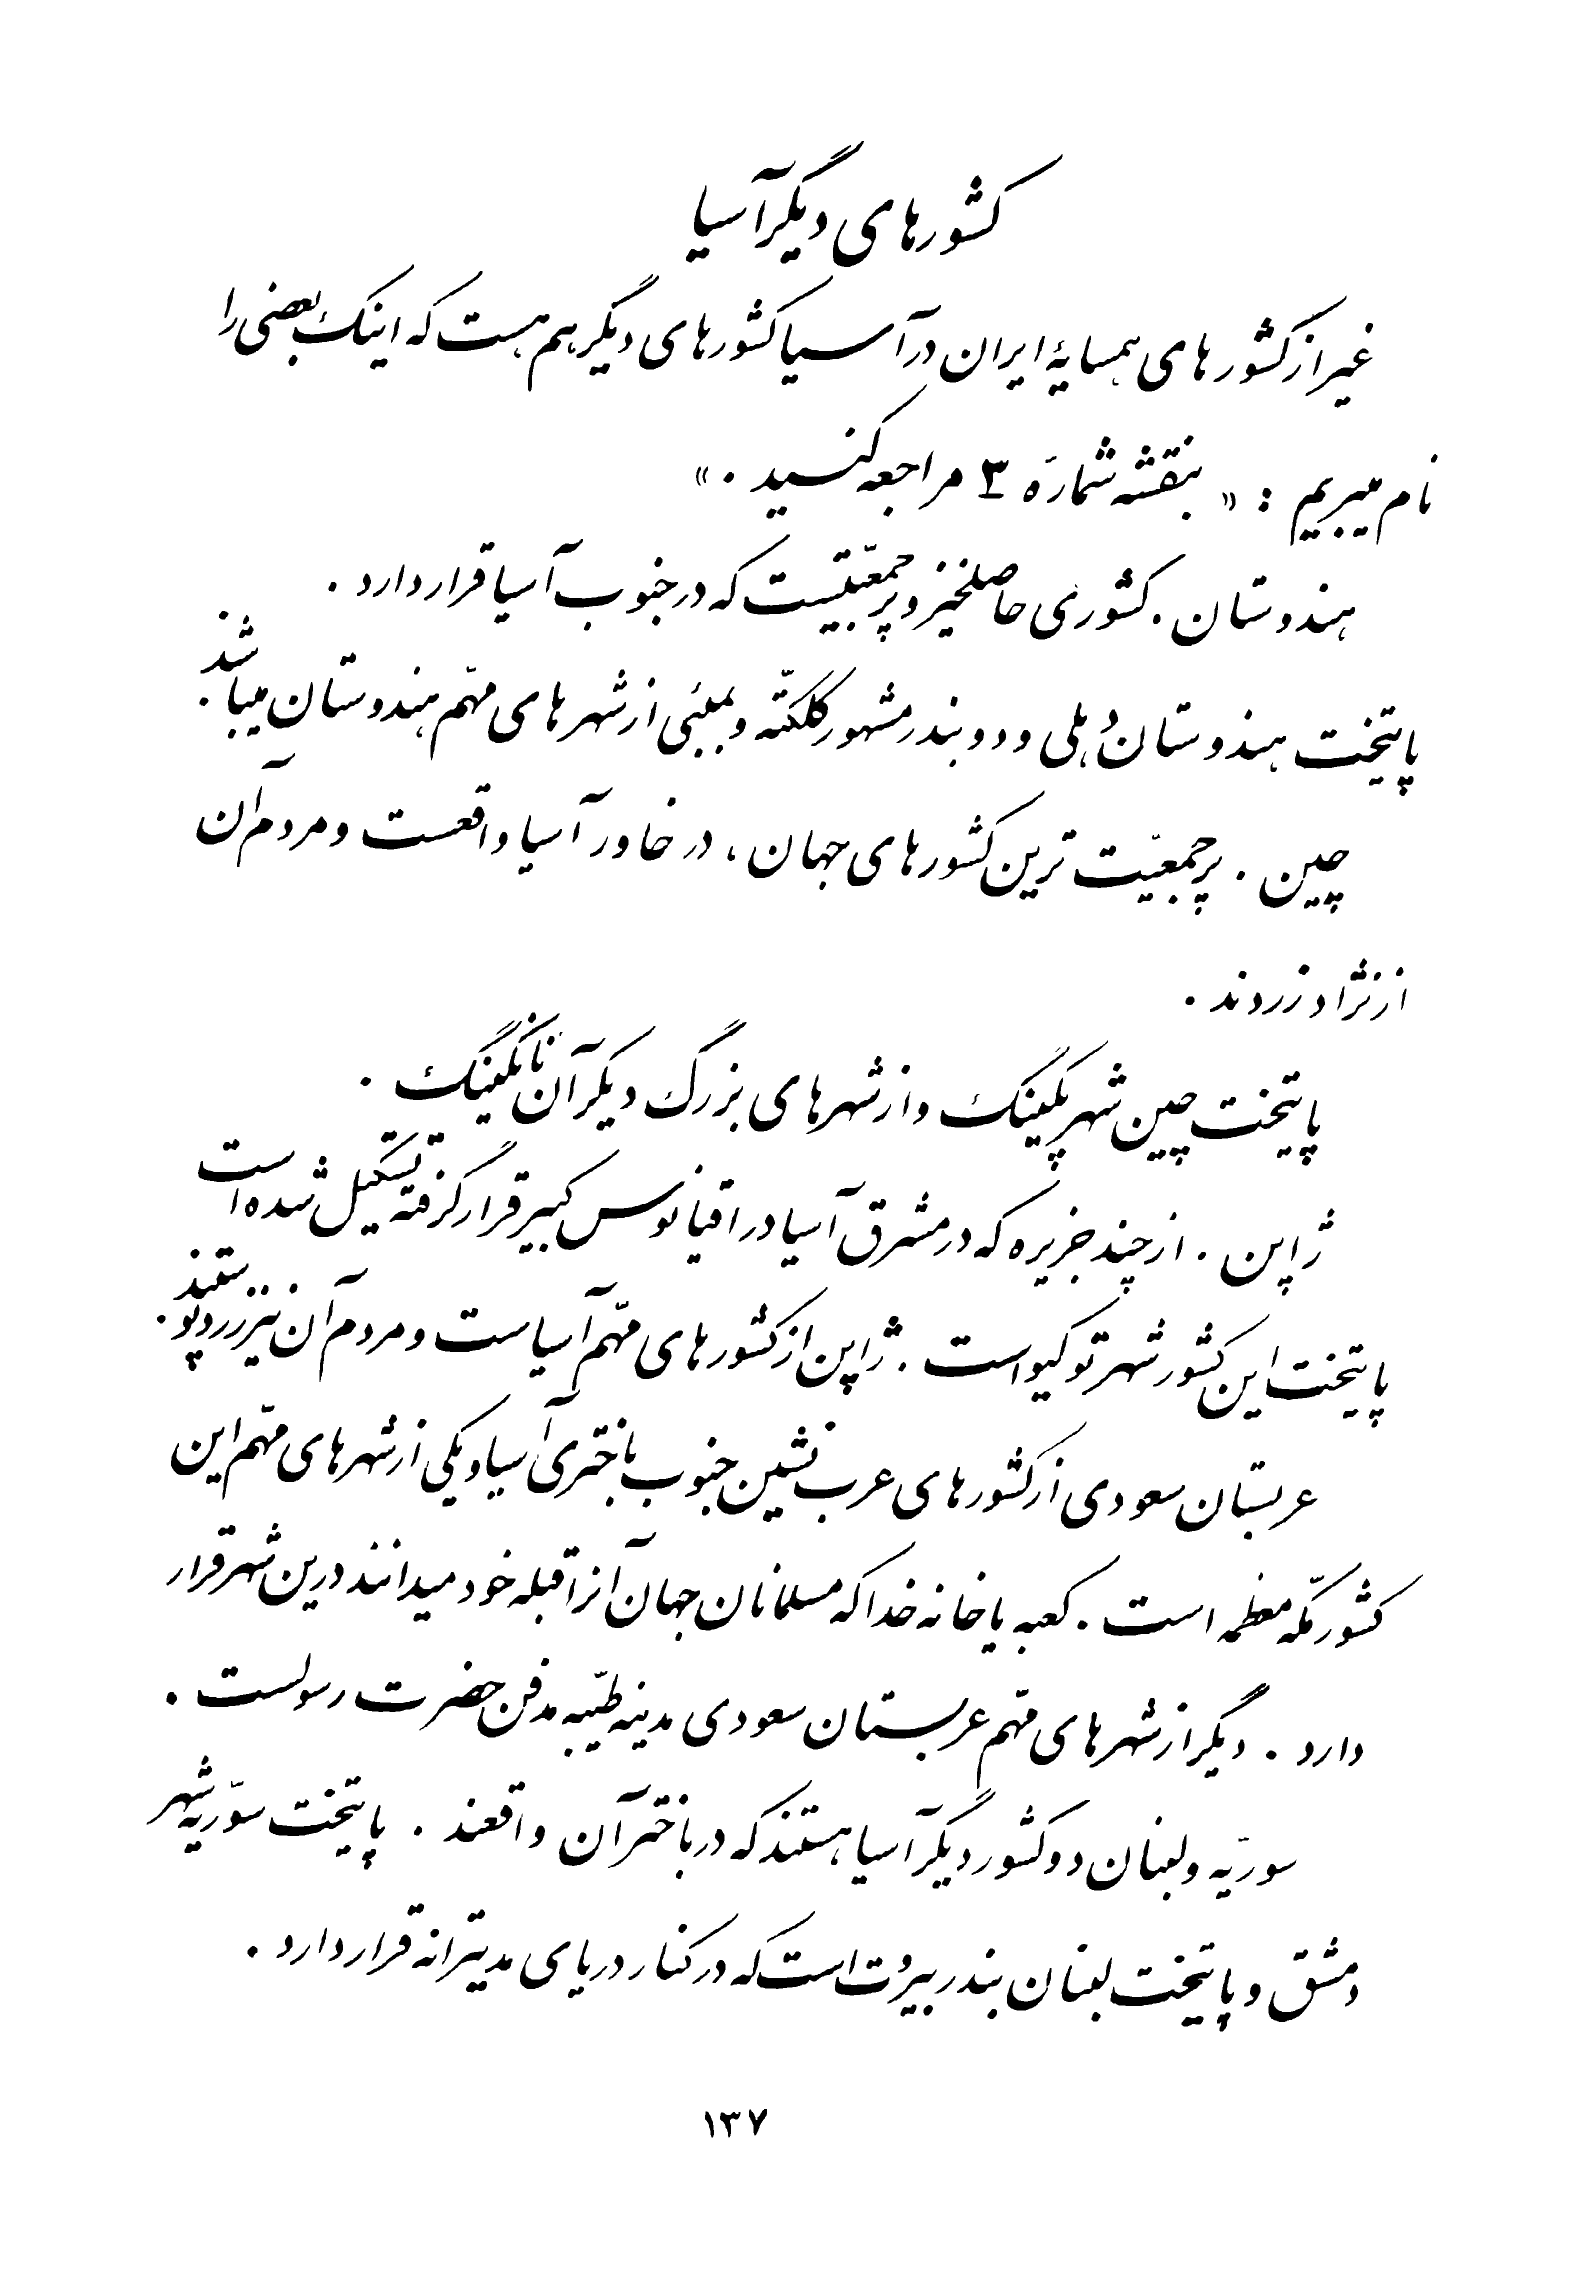 کشورهای دیگر آسیا
غیر از کشورهای همسایهٔ ایران در آسیا کشورهای دیگر هم هست که اینک بعضی را
نام میبریم : « بنقشه شمارهٔ ۳ مراجعه کنید . »
هندوستان . کشوری حاصلخیز و پرجمعیّتیست که در جنوب آسیا قرار دارد .
پایتخت هندوستان دُهلی و دو بندر مشهور کلکتّه و بمبئی از شهرهای مهّم هندوستان میباشد .
چین . پرجمعیّت ترین کشورهای جهان ، در خاور آسیا واقعست و مردم آن
از نژاد زردند .
پایتخت چین شهر پکینگ و از شهرهای بزرگ دیگر آن نانکینگ .
ژاپن . از چند جزیره که در مشرق آسیا در اقیانوس کبیر قرار گرفته تشکیل شده است
پایتخت این کشور شهر توکیو است . ژاپن از کشورهای مهّم آسیاست و مردم آن نیز زردپوستند .
عربستان سعودی از کشورهای عرب نشین جنوب باختری آسیا و یکی از شهرهای مهّم این
کشور مکّه معظمه است . کعبه یا خانه خدا که مسلمانان جهان آنرا قبله خود میدانند درین شهر قرار
دارد . دیگر از شهرهای مهّم عربستان سعودی مدینه طیّبه مدفن حضرت رسولست .
سوریّه و لبنان دو کشور دیگر آسیا هستند که در باختر آن واقعند . پایتخت سوّریه شهر
دمشق و پایتخت لبنان بندر بیرُوت است که در کنار دریای مدیترانه قرار دارد .
۱۳۷